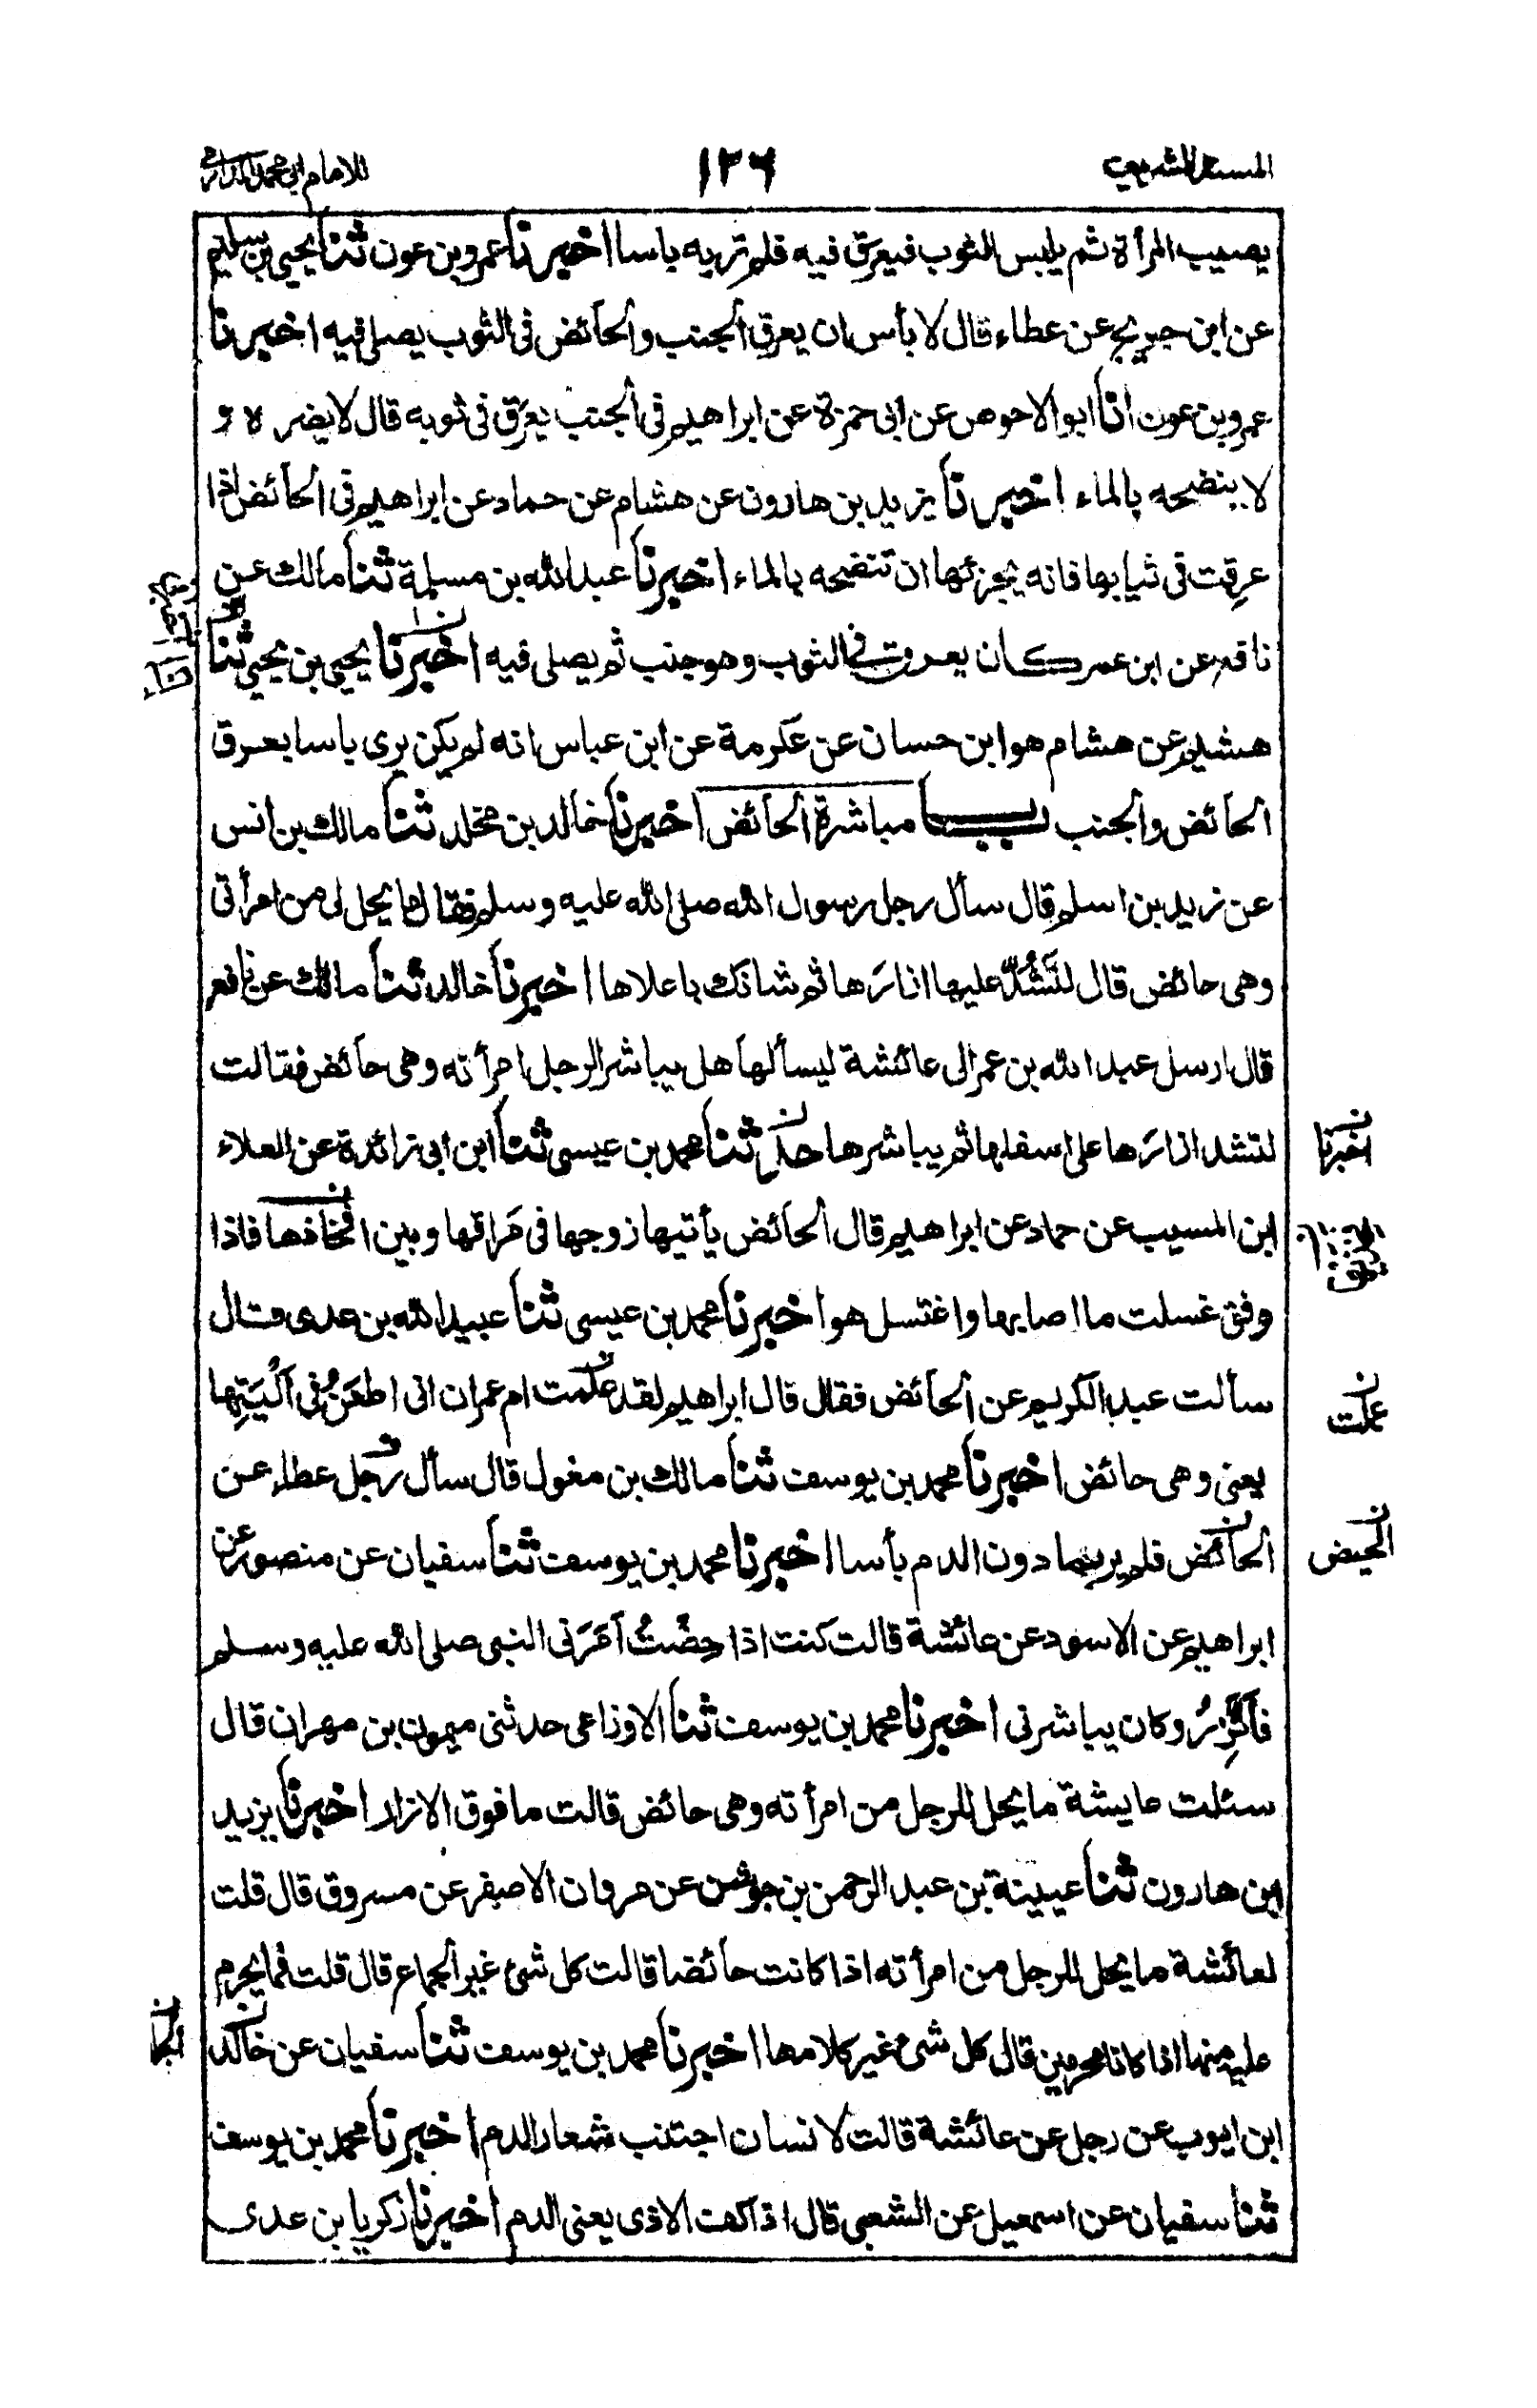 المسند الشريف
١٣٦
للامام ابى محمد الدارمى
يصيب المرأة ثم يلبس الثوب فيعرق فيه فلم تر به باسا اخبرنا عمرو بن عون ثنا يحيى بن سليم
عن ابن جريج عن عطاء قال لا بأس ان يعرق الجنب والحائض فى الثوب يصلى فيه اخبرنا
عمرو بن عون انا ابو الاحوص عن ابى حمزة عن ابراهيم فى الجنب يعرق فى ثوبه قال لا يضره و
لا ينضحه بالماء اخبرنا يزيد بن هارون عن هشام عن حماد عن ابراهيم فى الحائض اذا
عرقت فى ثيابها فانه يجزئها ان تنضحه بالماء اخبرنا عبد الله بن مسلمة ثنا مالك عن
نافع عن ابن عمر كان يعرق فى الثوب وهو جنب ثم يصلى فيه اخبرنا يحيى بن يحيى ثنا
هشيم عن هشام هو ابن حسان عن عكرمة عن ابن عباس انه لم يكن يرى باسا بعرق
الحائض والجنب باب مباشرة الحائض اخبرنا خالد بن مخلد ثنا مالك بن انس
عن زيد بن اسلم قال سأل رجل رسول الله صلى الله عليه وسلم فقال ما يحل لى من امرأتى
وهى حائض قال لتَشُدَّ عليها ازارَها ثم شانك باعلاها اخبرنا خالد ثنا مالك عن نافع
قال ارسل عبد الله بن عمر الى عائشة ليسألها هل يباشر الرجل امرأته وهى حائض فقالت
لتشد ازارَها على اسفلها ثم يباشرها حدثنا محمد بن عيسى ثنا ابن ابى زائدة عن العلاء
اخبرنا
ابن المسيب عن حماد عن ابراهيم قال الحائض يأتيها زوجها فى مَراقها وبين افخاذها فاذا
دفق غسلت ما اصابها واغتسل هو اخبرنا محمد بن عيسى ثنا عبيد الله بن عدى قال
سألت عبد الكريم عن الحائض فقال قال ابراهيم لقد علمت ام عمران انى اطعَنُ فى اَلْيَتِها
علمت
يعنى وهى حائض اخبرنا محمد بن يوسف ثنا مالك بن مغول قال سأل رجل عطاء عن
الحائض فلم ير بما دون الدم بأسا اخبرنا محمد بن يوسف ثنا سفيان عن منصور عن
الحيض
ابراهيم عن الاسود عن عائشة قالت كنت اذا حِضْتُ اَمَرَنى النبى صلى الله عليه وسلم
فأتَّزِرُ وكان يباشرنى اخبرنا محمد بن يوسف ثنا الاوزاعى حدثنى ميمون بن مهران قال
سئلت عايشة ما يحل للرجل من امرأته وهى حائض قالت ما فوق الازار اخبرنا يزيد
ابن هارون ثنا عيينة بن عبد الرحمن بن جوشن عن مروان الاصفر عن مسروق قال قلت
لعائشة ما يحل للرجل من امرأته اذا كانت حائضا قالت كل شئ غير الجماع قال قلت فما يحرم
عليه منها اذا كانا محرمين قال كل شئ غير كلامها اخبرنا محمد بن يوسف ثنا سفيان عن خالد
ابن ايوب عن رجل عن عائشة قالت لانسان اجتنب شعار الدم اخبرنا محمد بن يوسف
ثنا سفيان عن اسمعيل عن الشعبى قال اذا كفت الاذى يعنى الدم اخبرنا زكريا بن عدى